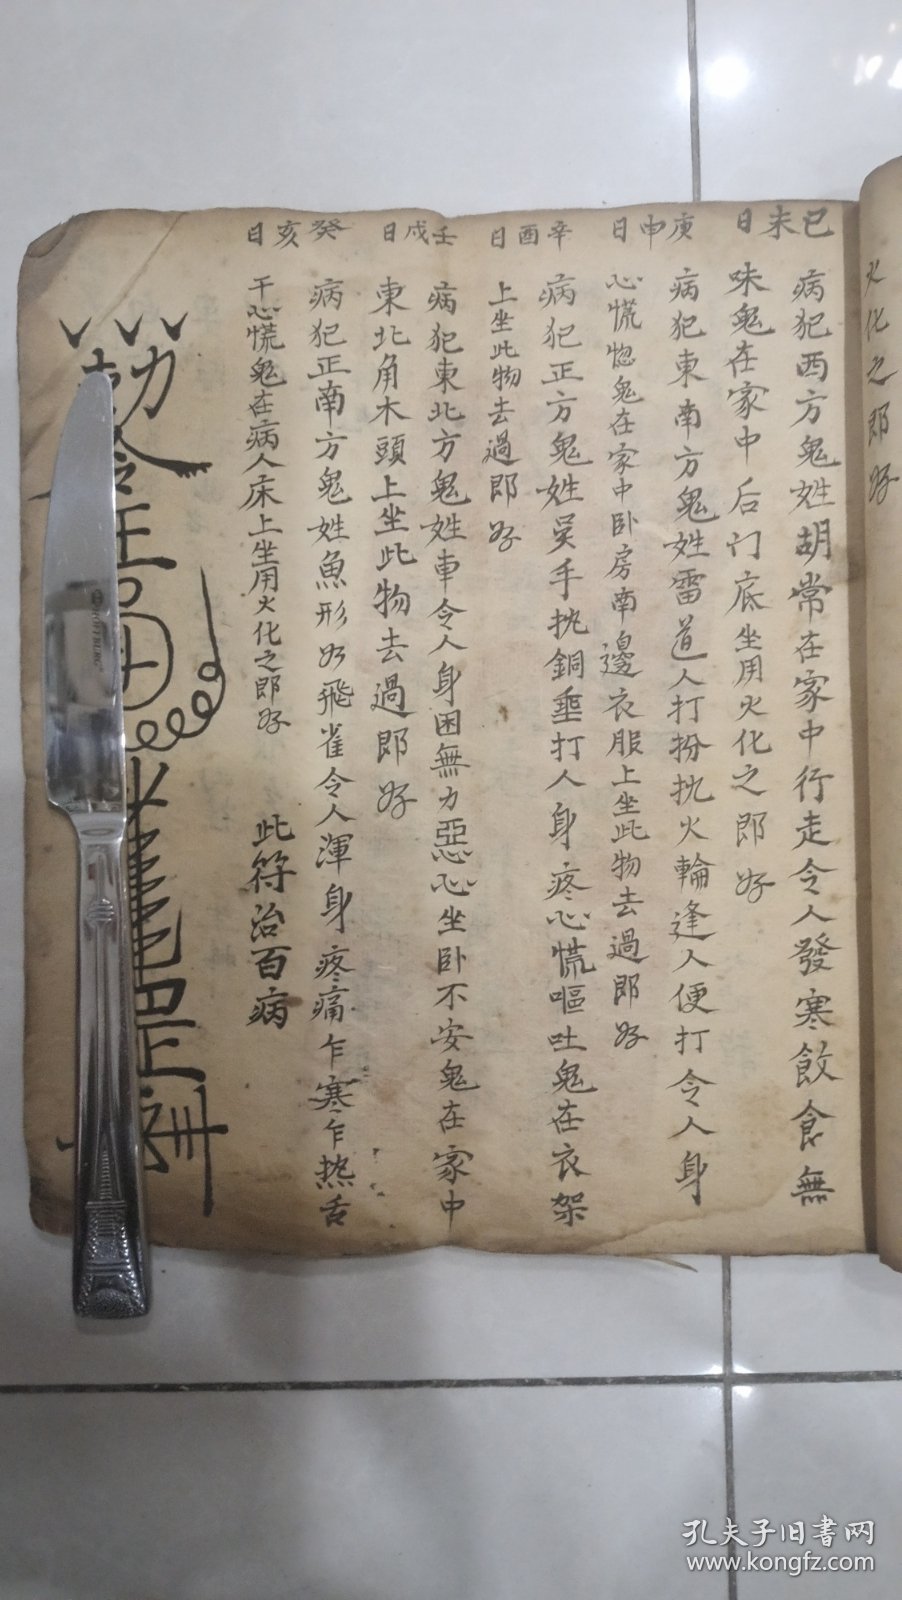 火化之郎好
己未日
病犯西方鬼姓胡常在家中行走令人發寒飲食無
味鬼在家中后门底坐用火化之郎好
庚申日
病犯東南方鬼姓雷道人打扮执火輪逢人便打令人身
心慌惚鬼在家中卧房南邊衣服上坐此物去過郎好
辛酉日
病犯正方鬼姓吴手执銅垂打人身疼心慌嘔吐鬼在衣架
上坐此物去過郎好
壬戌日
病犯東北方鬼姓車令人身困無力惡心坐卧不安鬼在家中
東北角木頭上坐此物去過郎好
癸亥日
病犯正南方鬼姓魚形如飛雀令人渾身疼痛乍寒乍热舌
干心慌鬼在病人床上坐用火化之郎好
此符治百病
孔夫子旧書网
www.kongfz.com